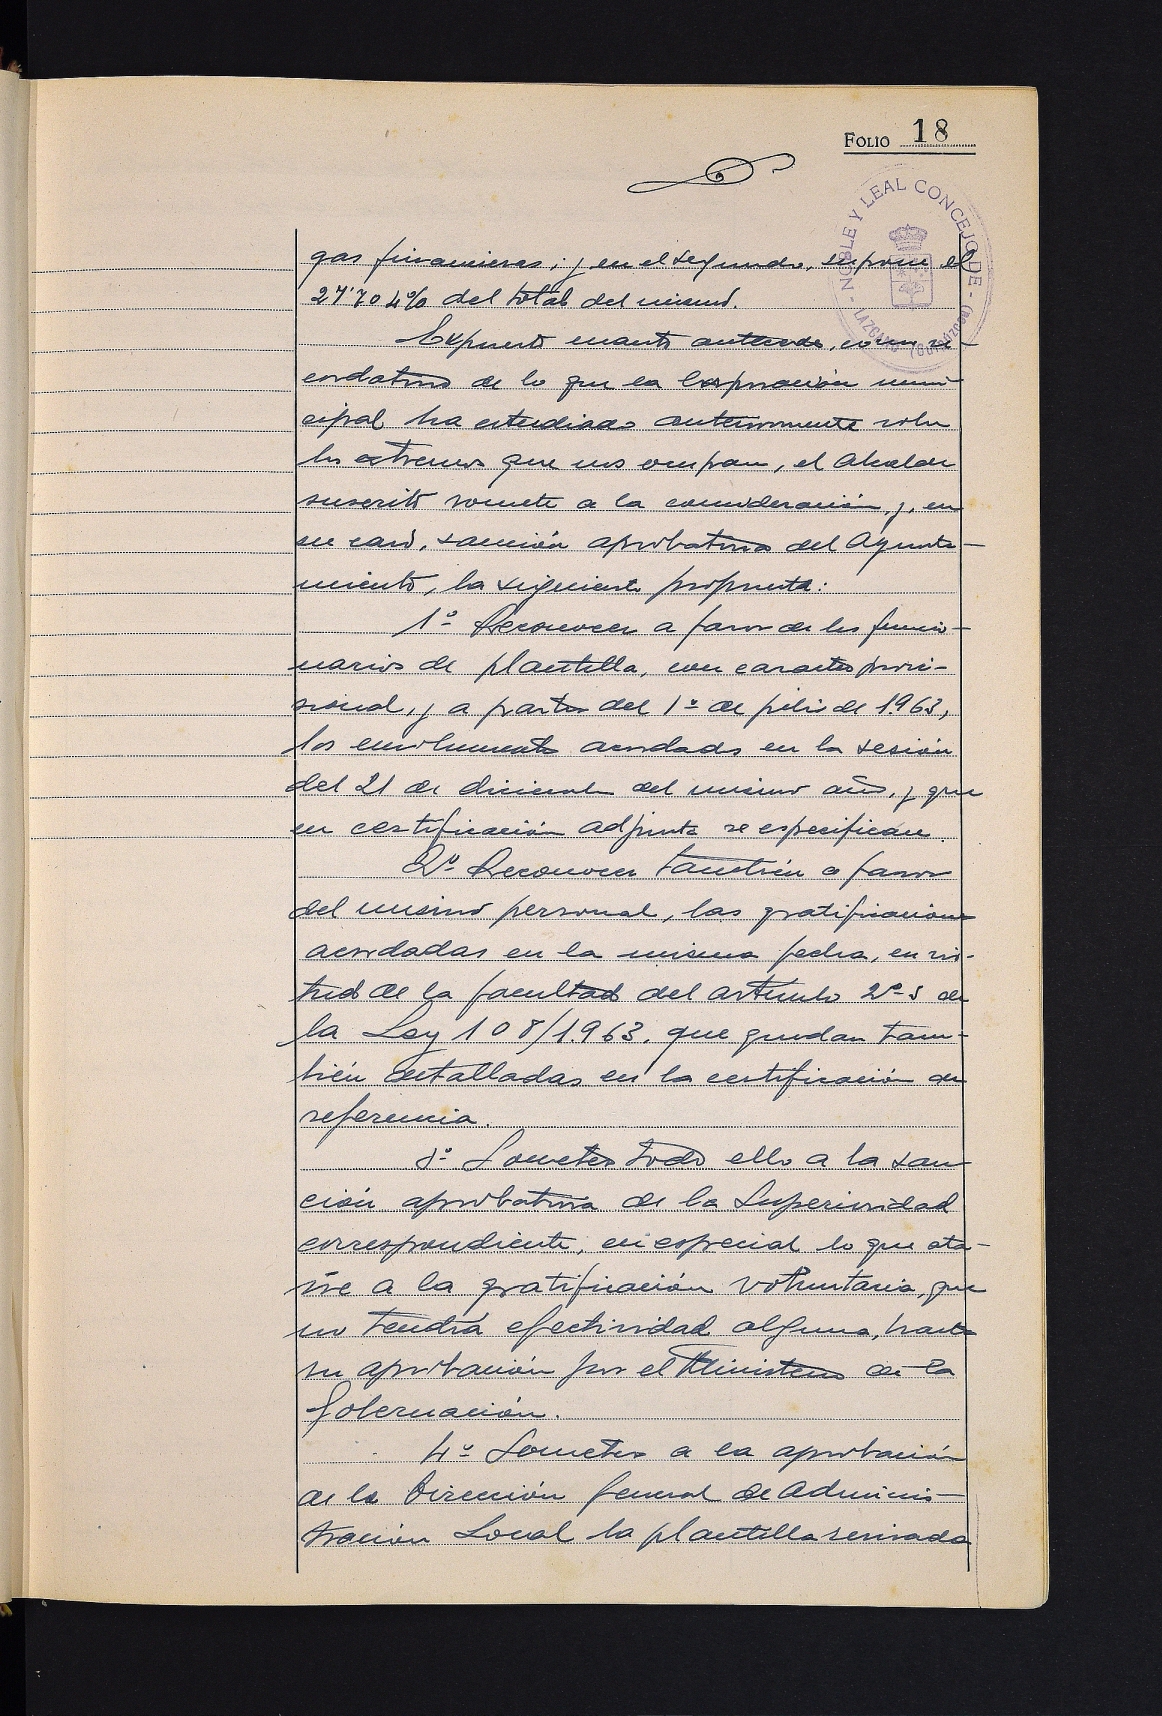 FOLIO 18
- NOBLE Y LEAL CONCEJO DE - LAZCANO (GUIPÚZCOA)
gas financieras; y en el segundo, supone el
27'704% del total del mismo.
Expuesto cuanto antecede, como re-
cordatorio de lo que la Corporación muni-
cipal ha estudiado anteriormente sobre
los extremos que nos ocupan, el Alcalde
suscrito somete a la consideración, y, en
su caso, sanción aprobatoria del Ayunta-
miento, la siguiente propuesta:
1º Reconocer a favor de los funcio-
narios de plantilla, con caracter provi-
sional, y a partir del 1º de julio de 1.963,
los emolumentos acordados en la sesión
del 21 de diciembre del mismo año, y que
en certificación adjunta se especifican.
2º Reconocer también a favor
del mismo personal, las gratificaciones
acordadas en la misma fecha, en vir-
tud de la facultad del artículo 2º-3 de
la Ley 108/1.963, que quedan tam-
bién detalladas en la certificación de
referencia.
3º Someter todo ello a la san-
ción aprobatoria de la Superioridad
correspondiente, en especial lo que ata-
ñe a la gratificación voluntaria, que
no tendrá efectividad alguna, hasta
su aprobación por el Ministerio de la
Gobernación.
4º Someter a la aprobación
de la Dirección General de Adminis-
tración Local la plantilla revisada